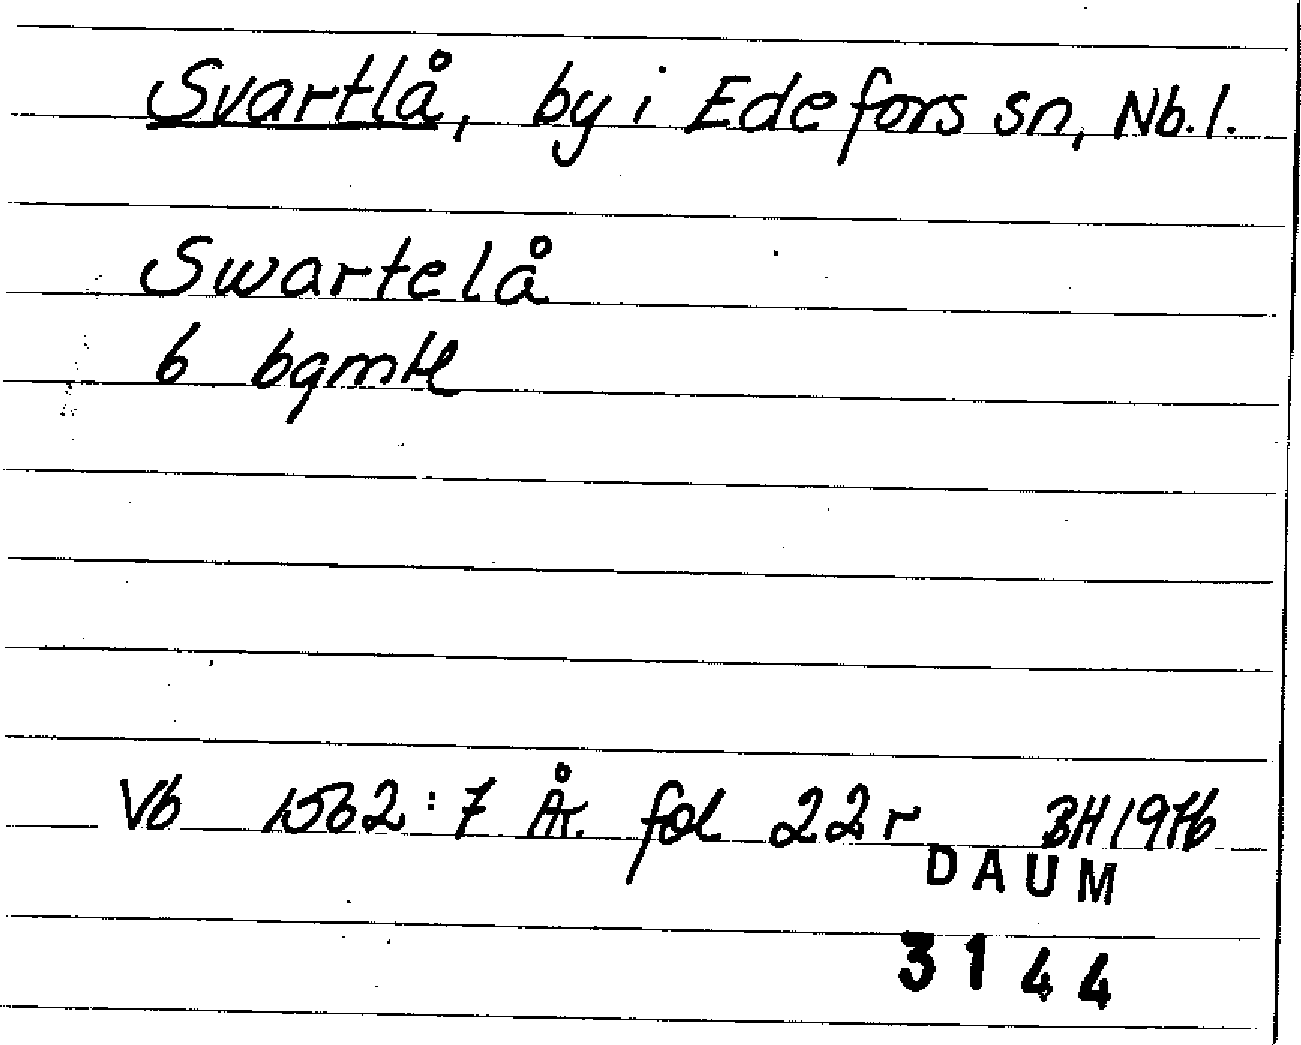 Svartlå, by i Edefors sn, Nb. l.
Swartelå
6 bgmtl
Vb 1562:7 År. fol 22r BH 1976
DAUM
3144